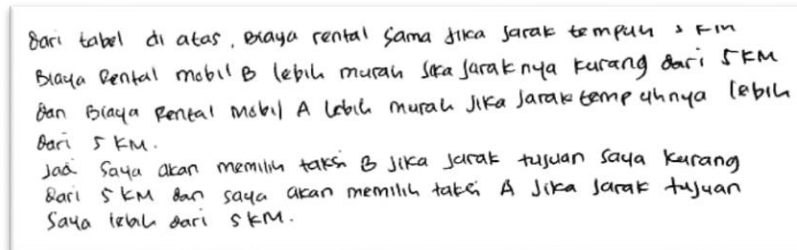 Dari tabel di atas, Biaya rental sama jika jarak tempuh 5 KM
Biaya Rental mobil B lebih murah jika jaraknya kurang dari 5 KM
dan Biaya Rental Mobil A lebih murah Jika Jarak tempuhnya lebih
Dari 5 KM.
Jadi Saya akan memilih taksi B Jika jarak tujuan saya kurang
Dari 5 KM dan saya akan memilih taksi A Jika Jarak tujuan
Saya lebih dari 5 KM.